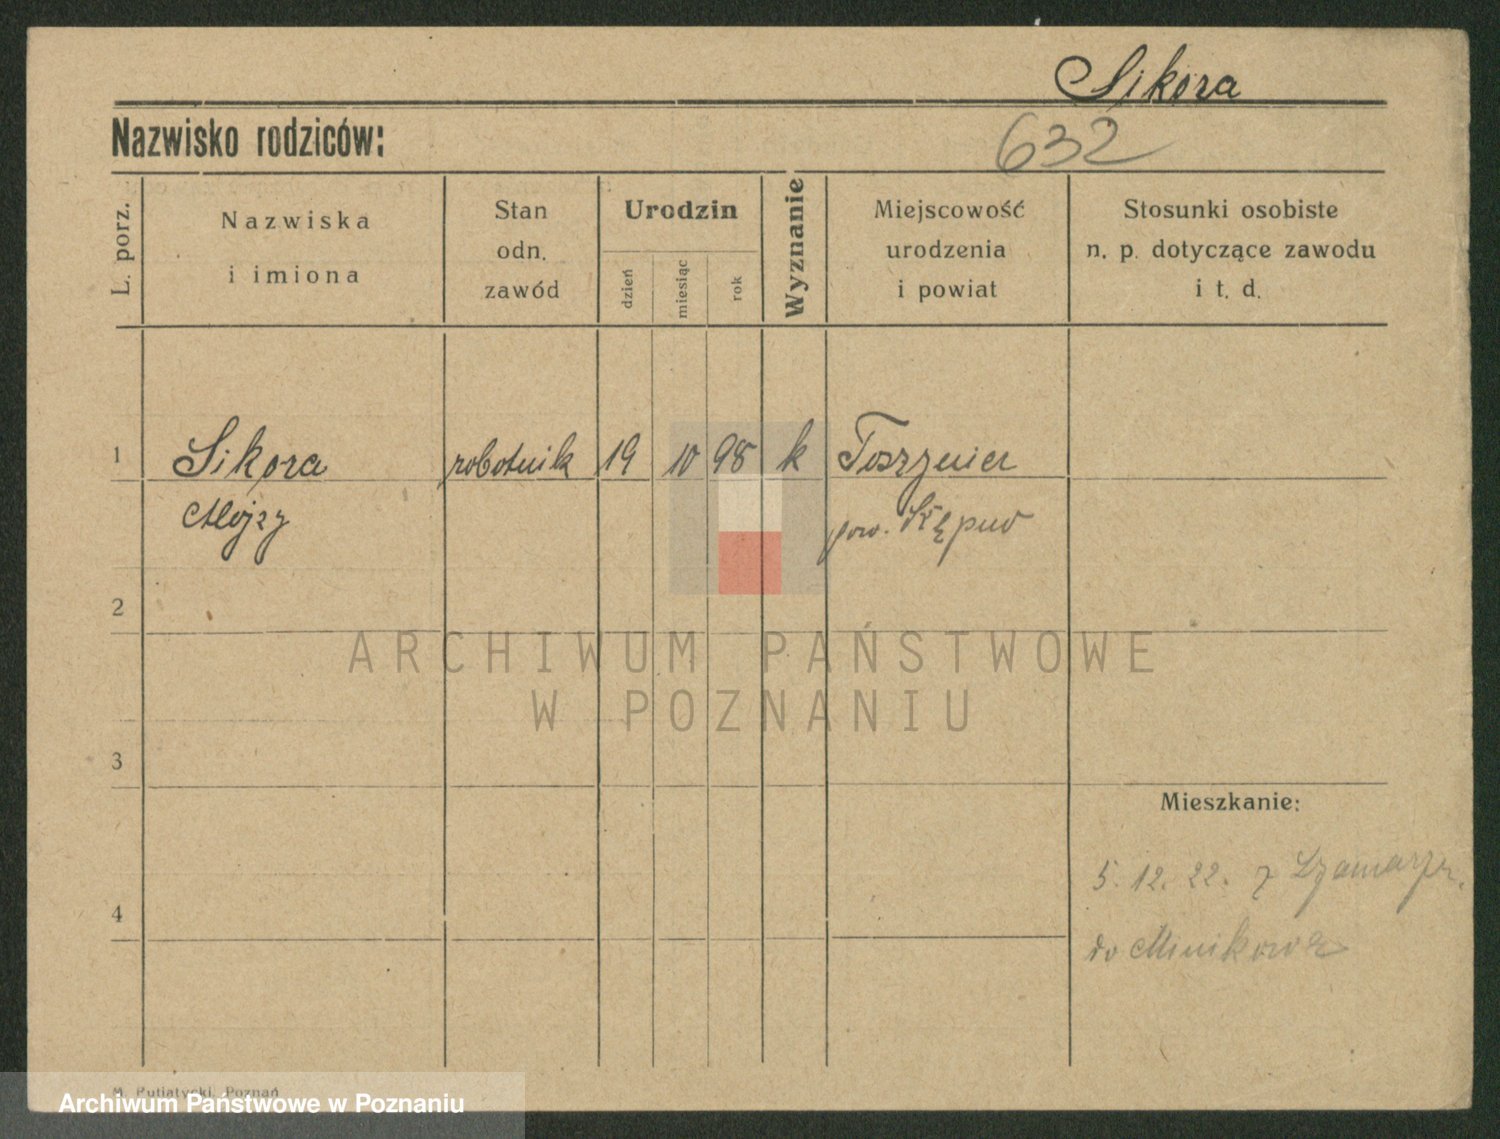 Sikora
Nazwisko rodziców:
632
L. porz.
Nazwiska
i imiona
Stan
odn.
zawód
Urodzin
dzień
miesiąc
rok
Wyznanie
Miejscowość
urodzenia
i powiat
Stosunki osobiste
n. p. dotyczące zawodu
i t. d.
1 Sikora robotnik 19 10 98 k
Alojzy pow.
2
ARCHIWUM PAŃSTWOWE
W POZNANIU
3
Mieszkanie:
5. 12. 22. z
4
do Minikowa
M. Putiatycki, Poznań
Archiwum Państwowe w Poznaniu